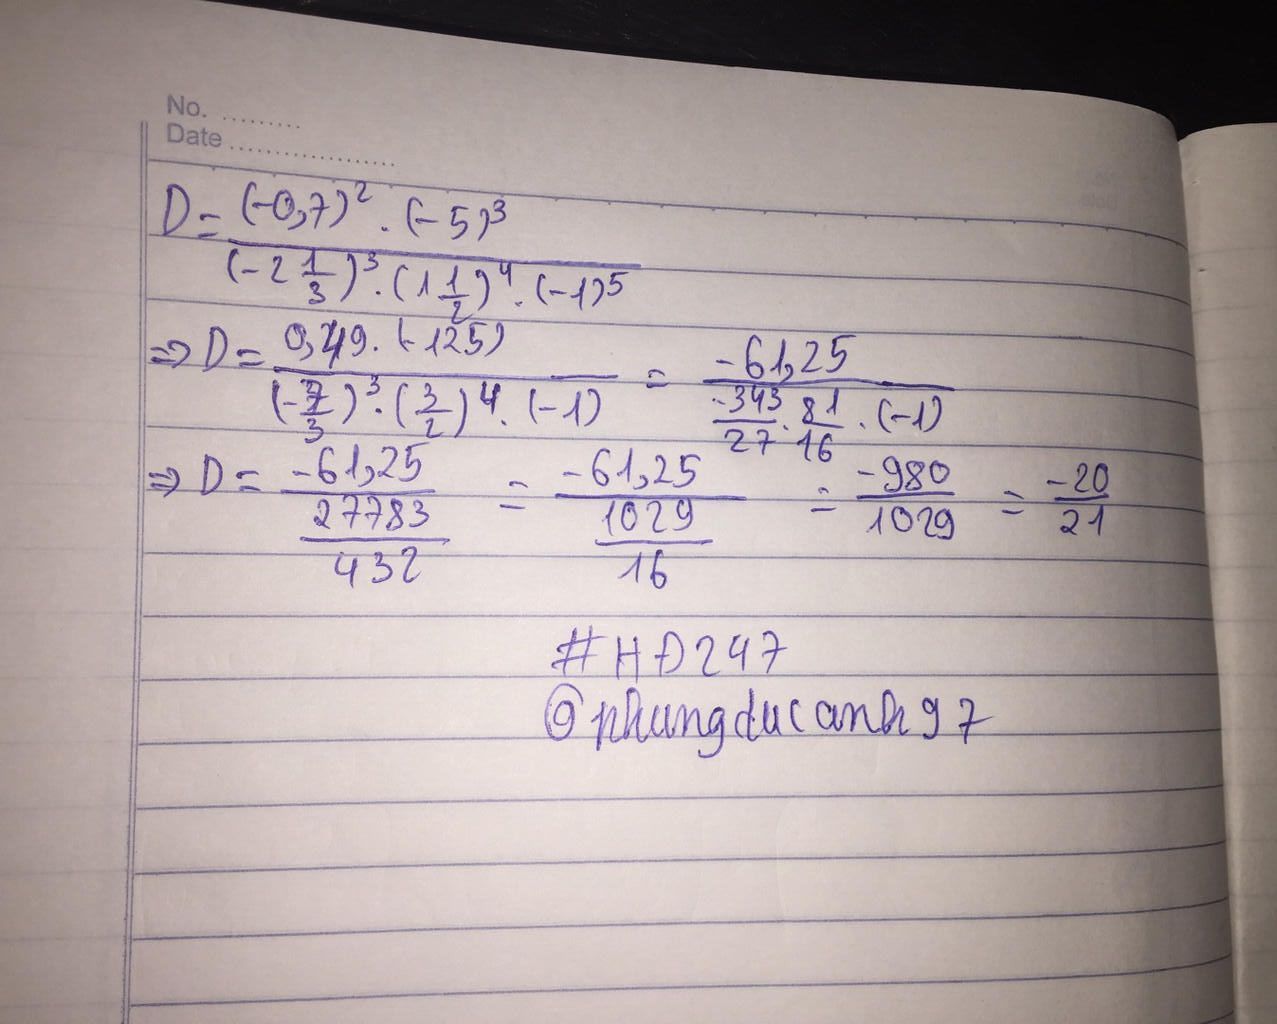 No. .........
Date ..................
D = (-0,7)² . (-5)³ / (-2 1/3)³ . (1 1/2)⁴ . (-1)⁵
⇒ D = 0,49 . (-125) / (-7/3)³ . (3/2)⁴ . (-1) = -61,25 / -343/27 . 81/16 . (-1)
⇒ D = -61,25 / 27783/432 = -61,25 / 1029/16 = -980/1029 = -20/21
#HĐ247
@phungducanh97